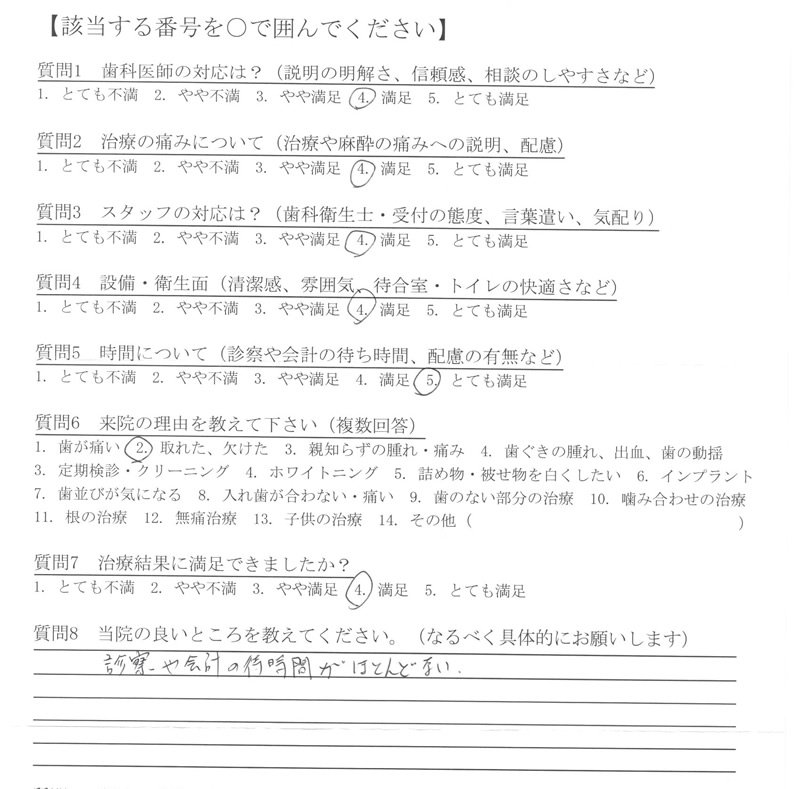 【該当する番号を〇で囲んでください】
質問1 歯科医師の対応は？（説明の明解さ、信頼感、相談のしやすさなど）
1. とても不満 2. やや不満 3. やや満足 4. 満足 5. とても満足
質問2 治療の痛みについて（治療や麻酔の痛みへの説明、配慮）
1. とても不満 2. やや不満 3. やや満足 4. 満足 5. とても満足
質問3 スタッフの対応は？（歯科衛生士・受付の態度、言葉遣い、気配り）
1. とても不満 2. やや不満 3. やや満足 4. 満足 5. とても満足
質問4 設備・衛生面（清潔感、雰囲気、待合室・トイレの快適さなど）
1. とても不満 2. やや不満 3. やや満足 4. 満足 5. とても満足
質問5 時間について（診察や会計の待ち時間、配慮の有無など）
1. とても不満 2. やや不満 3. やや満足 4. 満足 5. とても満足
質問6 来院の理由を教えて下さい（複数回答）
1. 歯が痛い 2. 取れた、欠けた 3. 親知らずの腫れ・痛み 4. 歯ぐきの腫れ、出血、歯の動揺
3. 定期検診・クリーニング 4. ホワイトニング 5. 詰め物・被せ物を白くしたい 6. インプラント
7. 歯並びが気になる 8. 入れ歯が合わない・痛い 9. 歯のない部分の治療 10. 噛み合わせの治療
11. 根の治療 12. 無痛治療 13. 子供の治療 14. その他（ ）
質問7 治療結果に満足できましたか？
1. とても不満 2. やや不満 3. やや満足 4. 満足 5. とても満足
質問8 当院の良いところを教えてください。（なるべく具体的にお願いします）
診察や会計の待時間がほとんどない．